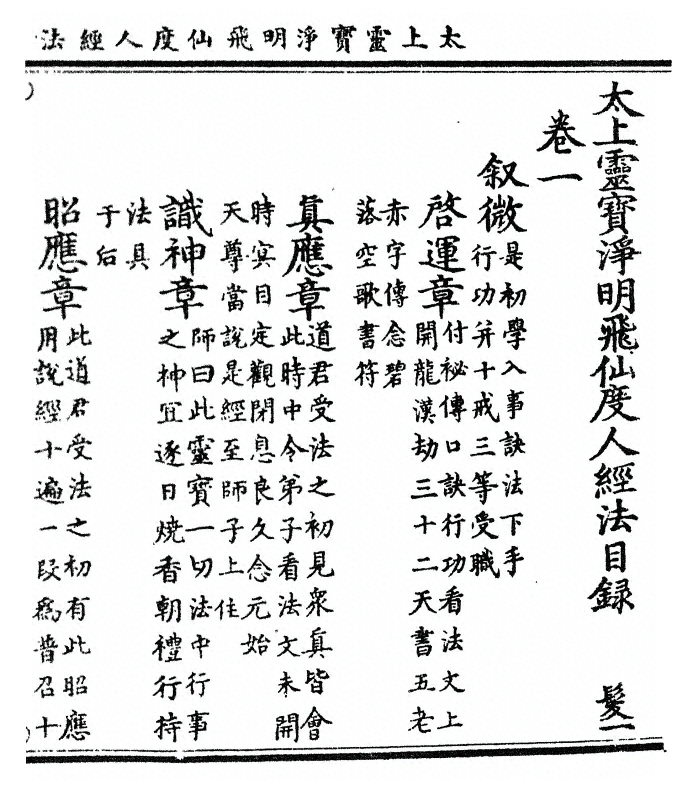 太上靈寶淨明飛仙度人經法
太上靈寶淨明飛仙度人經法目録 髮一
卷一
叙微是初學入事訣法下手
行功并十戒三等受職
啓運章付祕傳口訣行功看法文上
開龍漢劫三十二天書五老
赤字傳念碧
落空歌書符
真應章道君受法之初見衆真皆會
此時中令弟子看法文未開
時㝠目定觀閉息良久念元始
天尊當說是經至師子上住
識神章師曰此靈寶一切法中行事
之神宜逐日燒香朝禮行持
法具
于后
昭應章此道君受法之初有此昭應
用說經十遍一段爲普召十